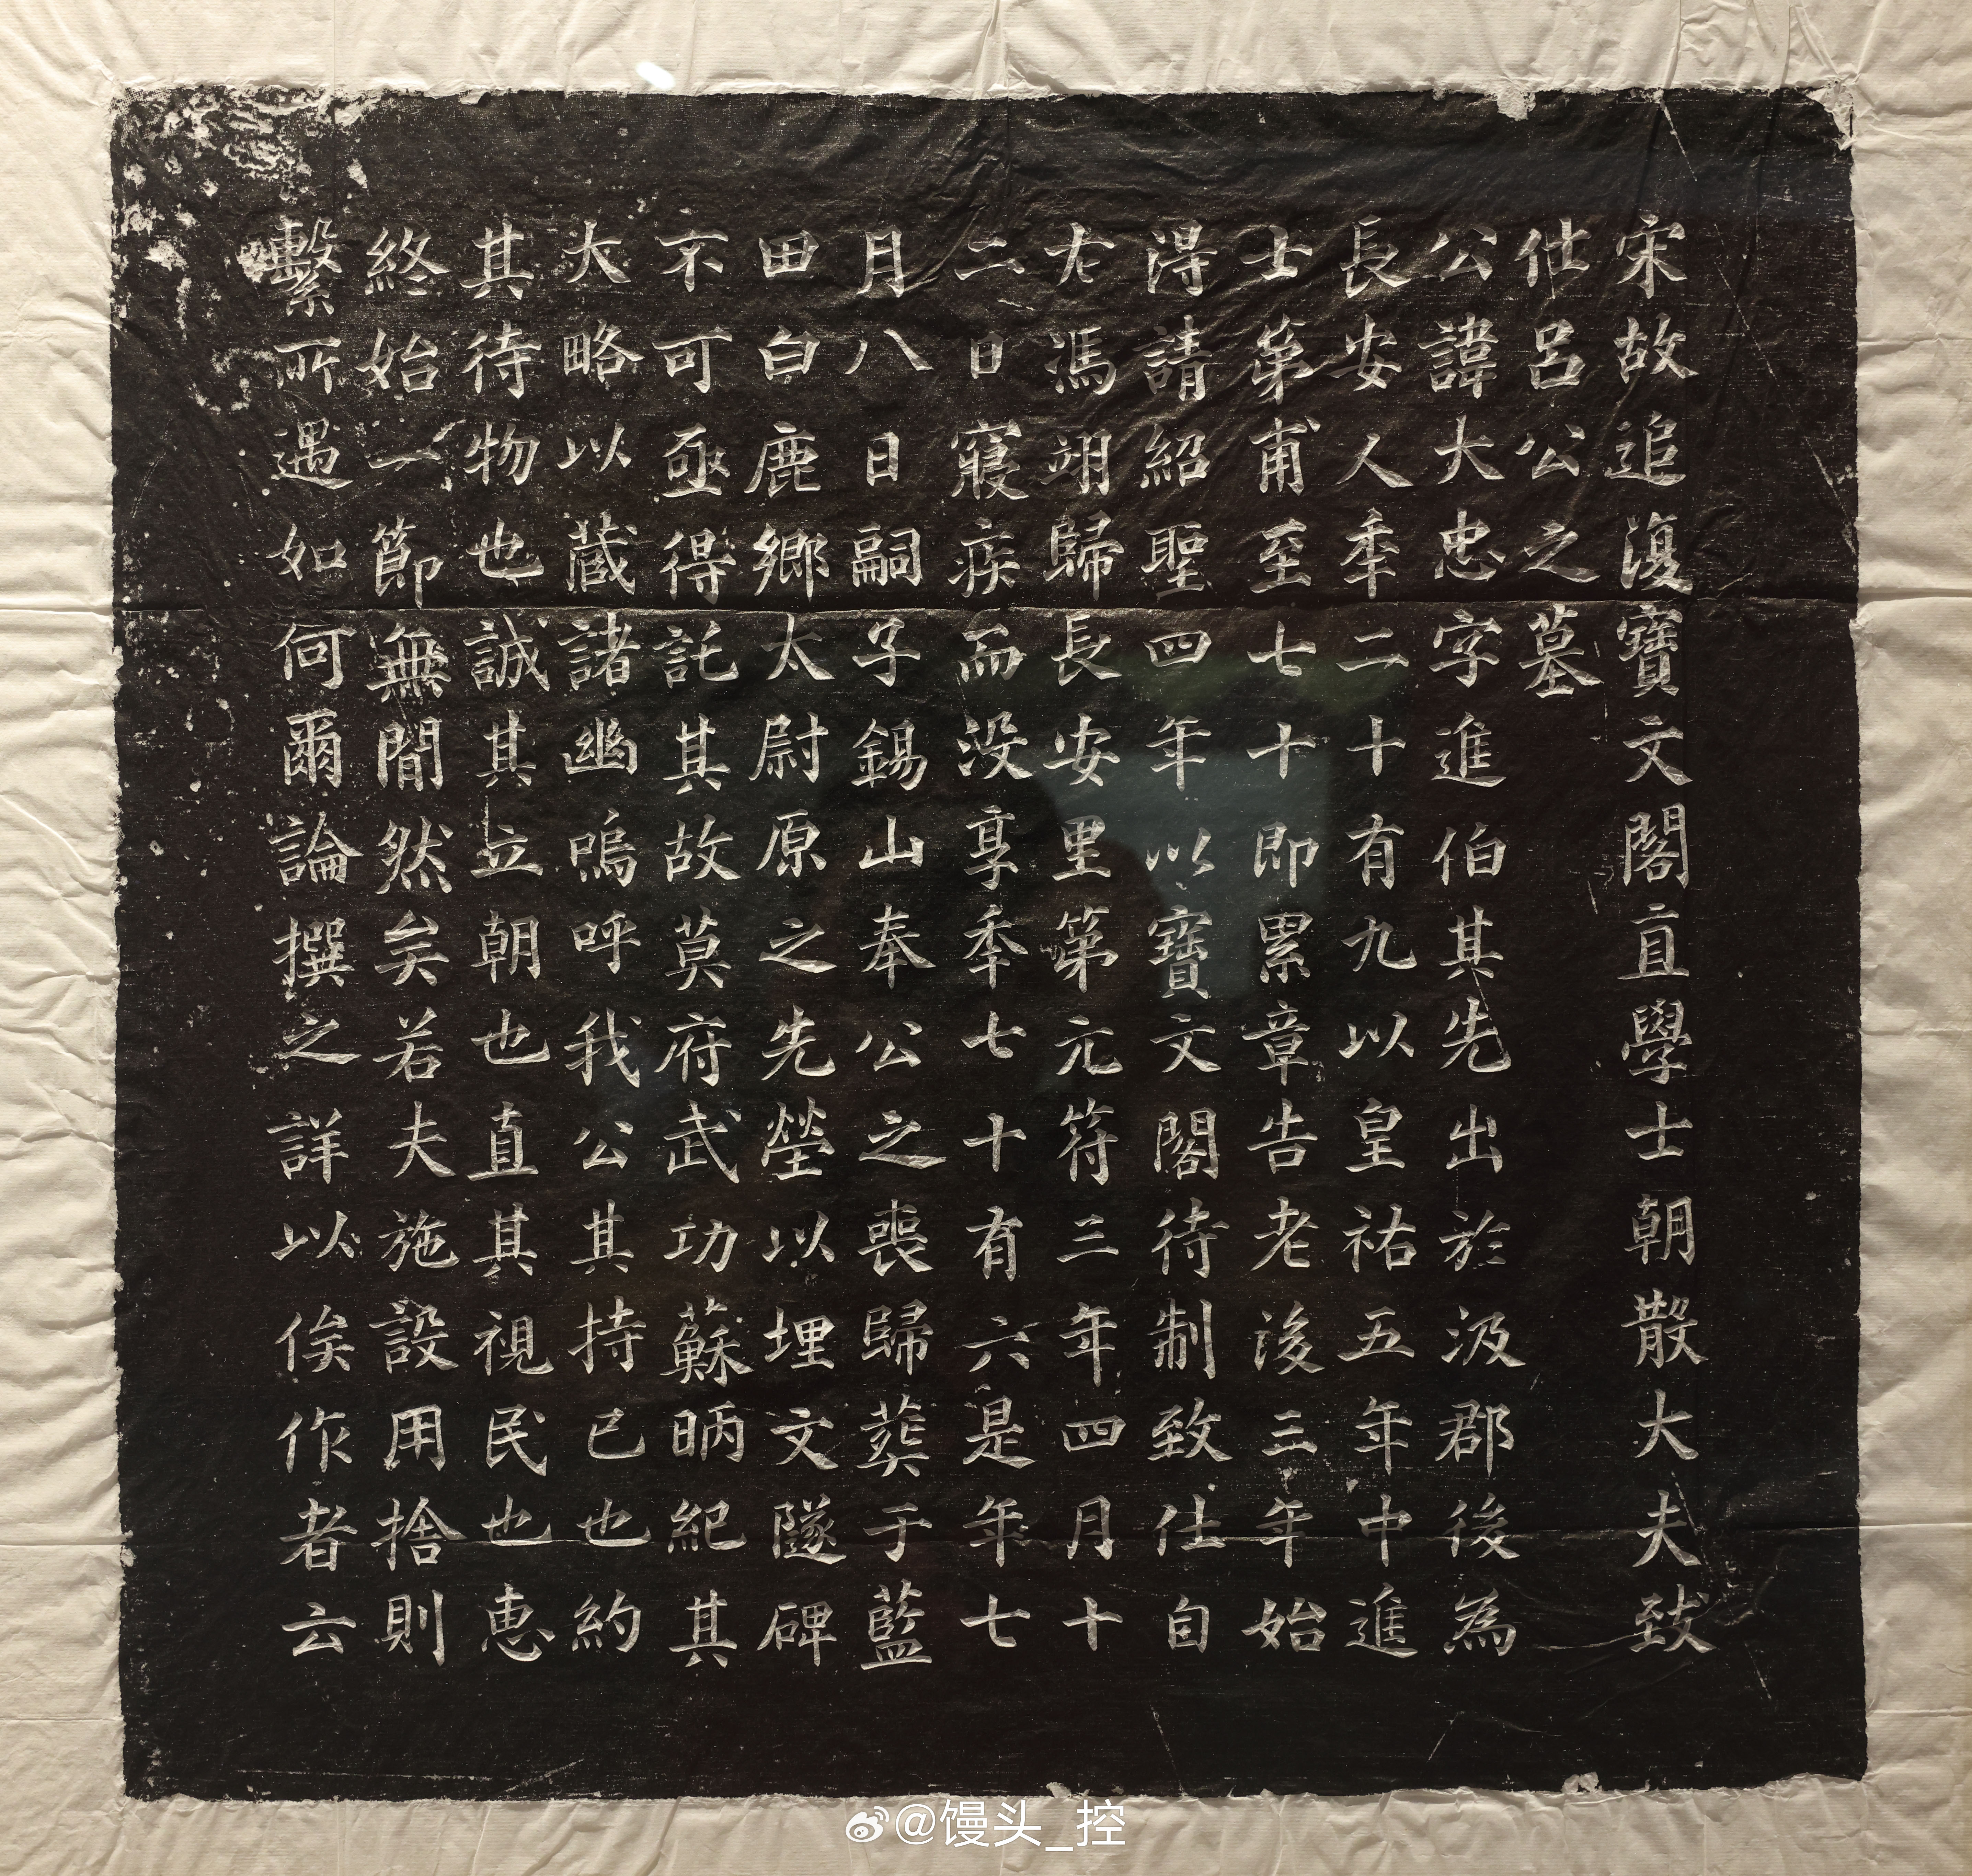 宋故追復寶文閣直學士朝散大夫致
仕呂公之墓
公諱大忠字進伯其先出於汲郡後為
長安人年二十有九以皇祐五年中進
士第甫至七十即累章告老後三年始
得請紹聖四年以寶文閣待制致仕自
尤馮翊歸長安里第元符三年四月十
二日寢疾而没享年七十有六是年七
月八日嗣子錫山奉公之喪歸葬于藍
田白鹿鄉太尉原之先塋以埋文隧碑
不可亟得託其故莫府武功蘇昞紀其
大略以藏諸幽嗚呼我公其持已也約
其待物也誠其立朝也直其視民也惠
終始一節無間然矣若夫施設用捨則
繫所遇如何爾論撰之詳以俟作者云
@馒头_控